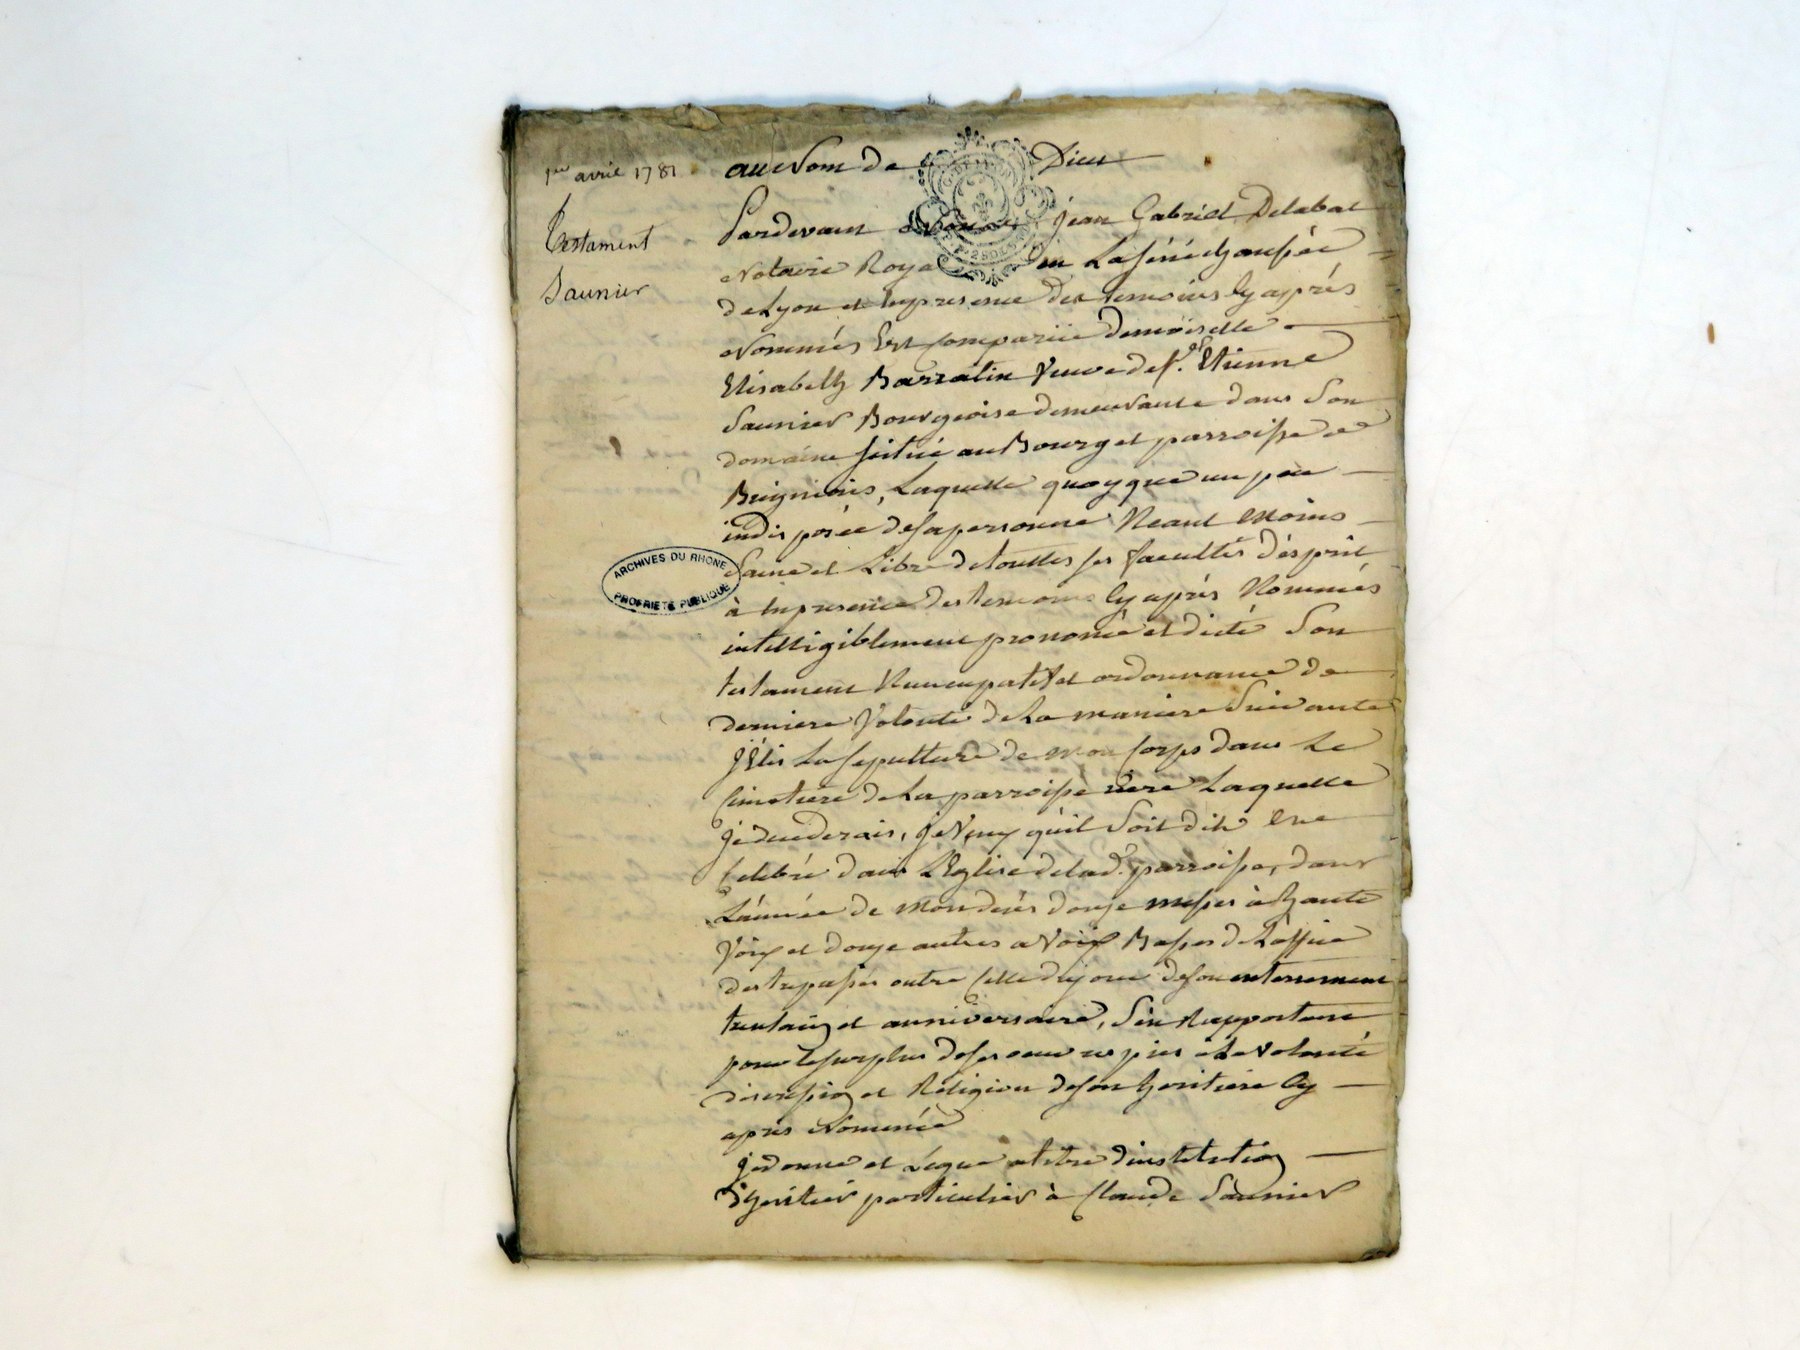 1er avril 1781
Testament
Saunier
au Nom de Dieu
Pardevant Nous Jean Gabriel Delabat
Notaire Royal en La sénéchaussée
de Lyon et en presence des temoins cy après
Nommés Est comparüe demoiselle
Elisabeth Barratin Veuve de Sr. Etienne
Saunier Bourgeoise demeurante dans Son
domaine scitué au Bourg et parroisse de
Brignais, Laquelle quoyque un peu
indisposée de sa personne Neant Moins
Saine et Libre de touttes ses facultés d'esprit
à en presence des temoins cy après Nommés
intelligiblement prononcé et dicté Son
testament Nuncupatif et ordonnance de
derniere Volonté de La maniere Suivante
J'élis La sepulture de mon corps dans Le
cimetiere de La parroisse riere Laquelle
je deciderais, je Veux qu'il Soit dit et
celebré dans L'Eglise de lad. parroisse, dans
L'année de mon decès douze messes à haute
Voix et douze autres a Voix Basses de L'office
des trepassés outre celle du jour de son enterrement
trentain et anniversaire, S'en Rapportant
pour le surplus de ses oeuvres pies à La Volonté
discression et Religion de son heritiere cy
après Nommée
Je donne et Legue a titre d'institution
d'heritier particulier à Claude Saunier
ARCHIVES DU RHONE
PROPRIETE PUBLIQUE